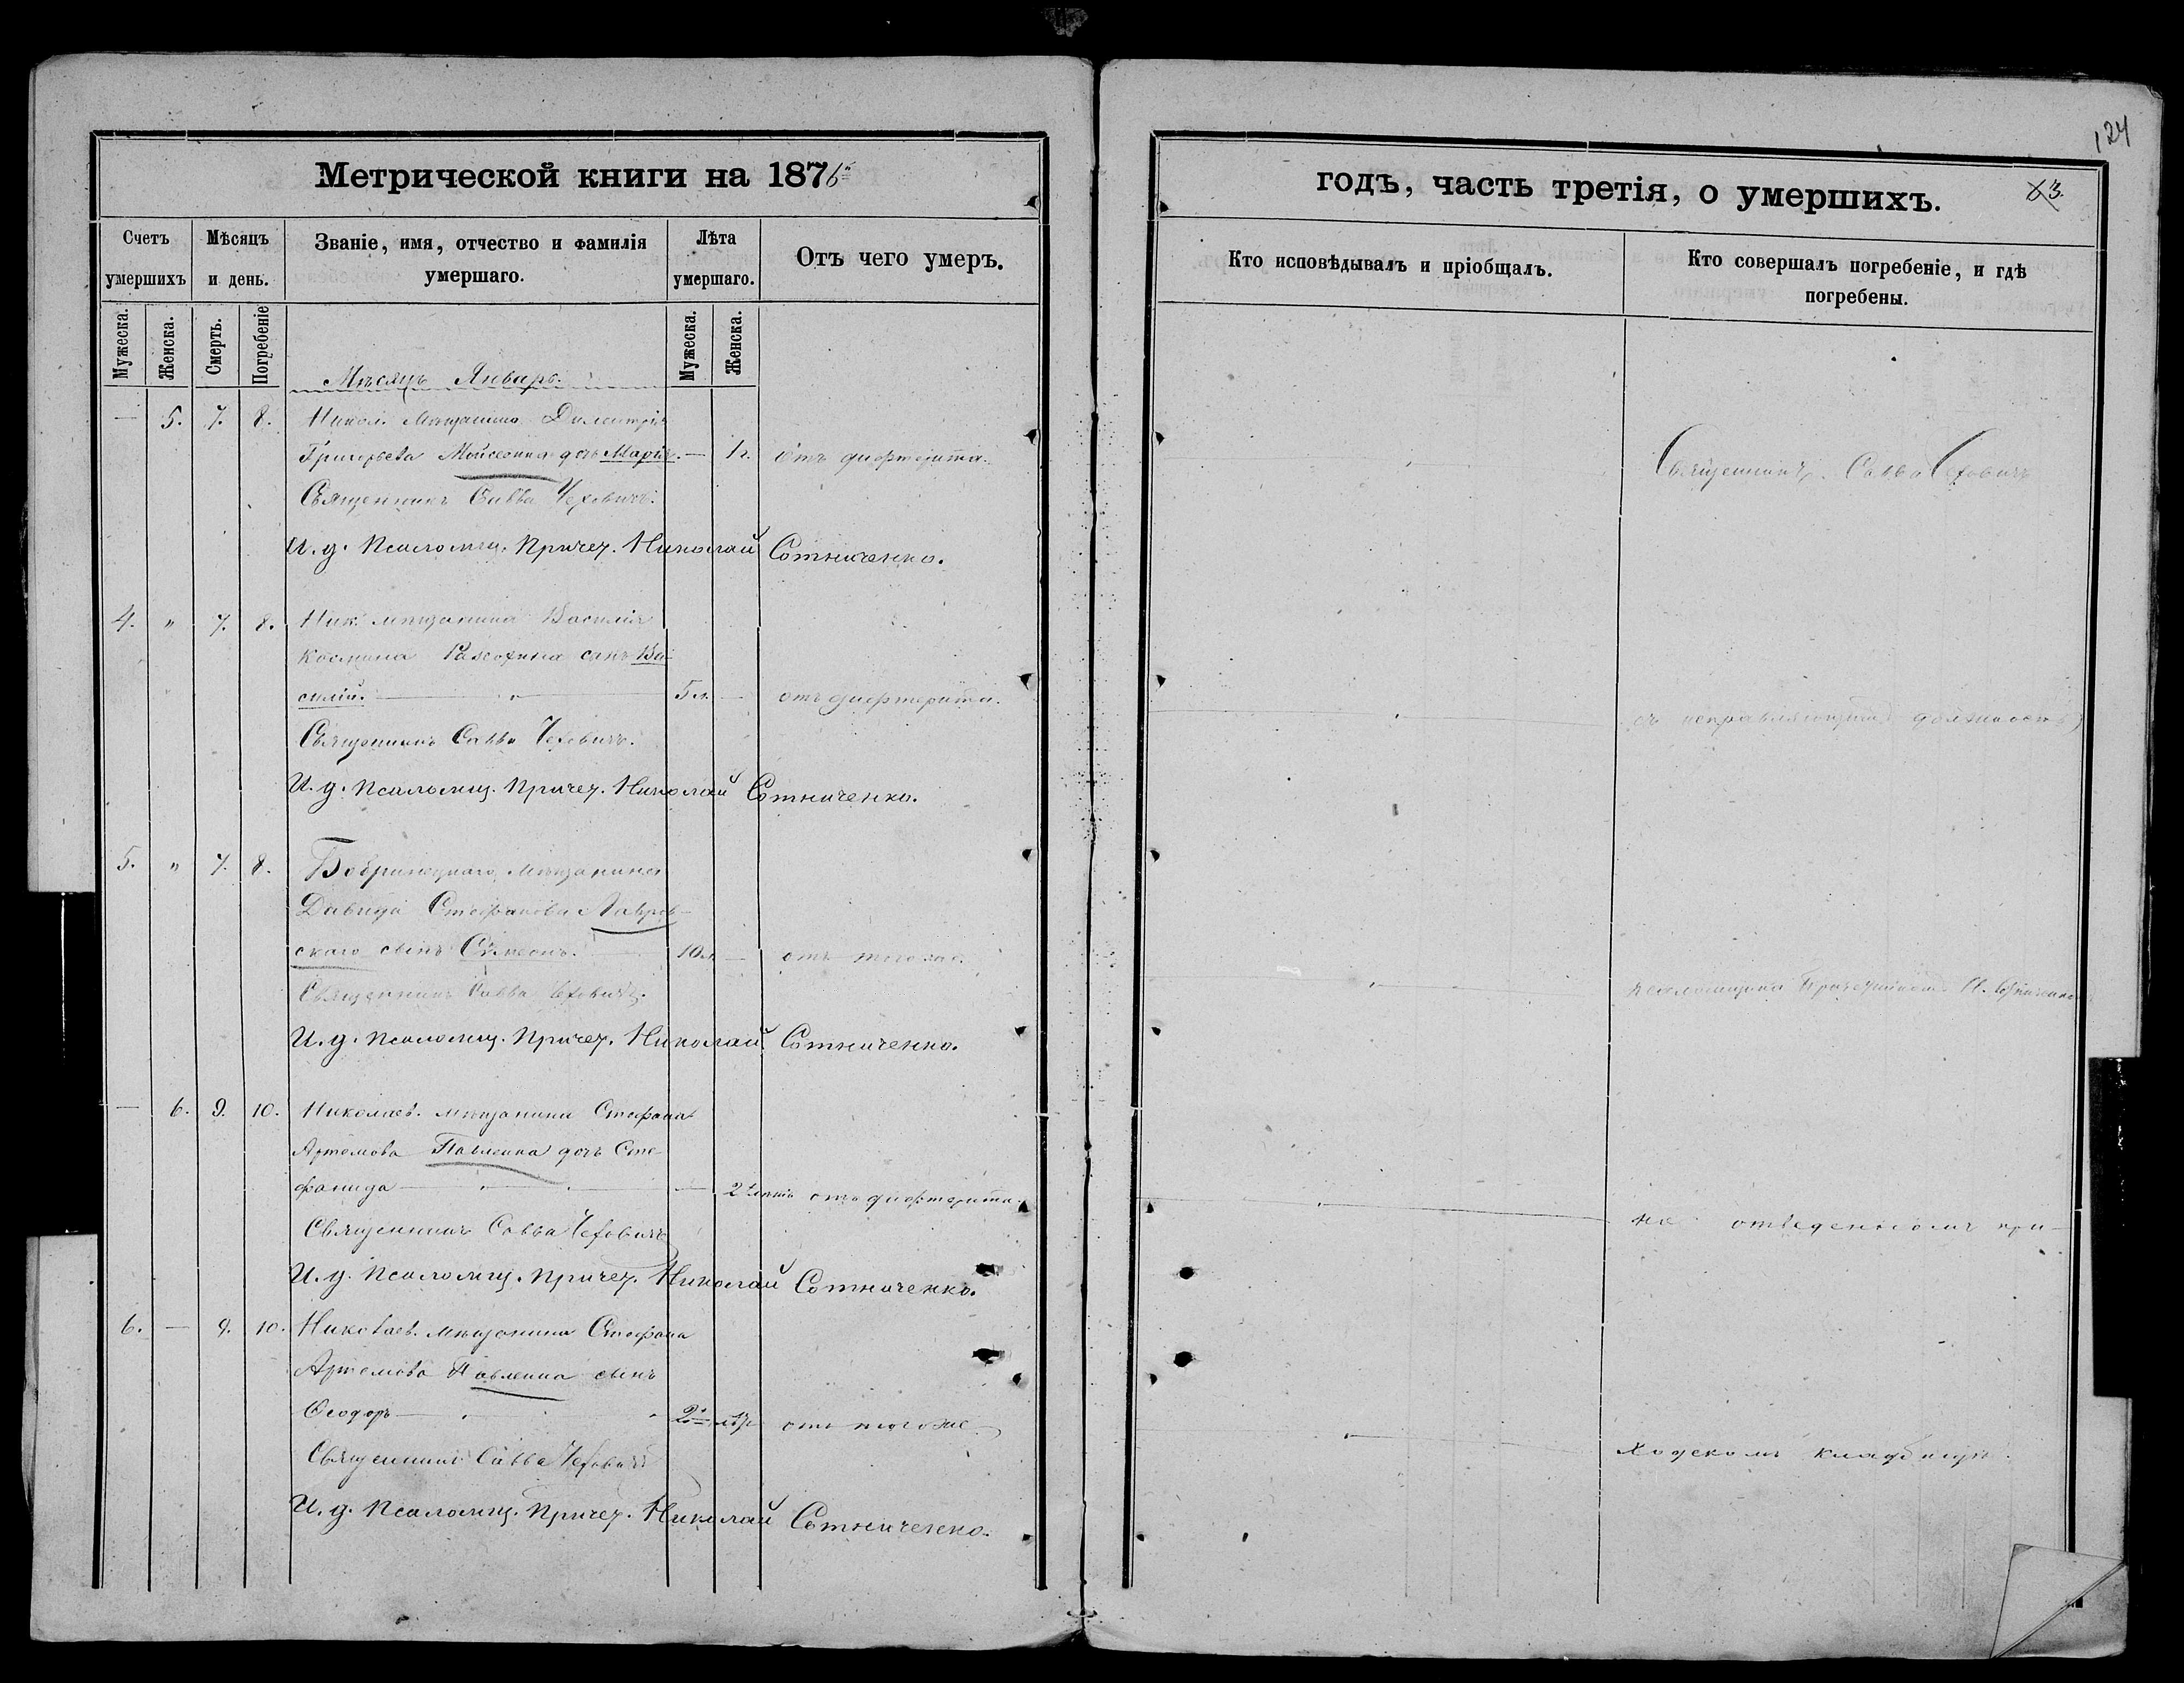 124
Метрической книги на 1876й
годъ, часть третія, о умершихъ.
3.
Счетъ умершихъ
Мѣсяцъ и день.
Званіе, имя, отчество и фамилія умершаго.
Лѣта умершаго.
Отъ чего умеръ.
Кто исповѣдывалъ и пріобщалъ.
Кто совершалъ погребеніе, и гдѣ погребены.
Мужеска. Женска. Смерть. Погребеніе
Мужеска. Женска.
Мѣсяцъ Январь.
— 5. 7. 8. Никол. мѣщанина Димитрія
Григорьева Мойсеенка дочь Марія. — 1 г. отъ дифтерита.
Священникъ Савва Чехович
И. д. Псаломщ. Причет. Николай Сотниченко.
4. " 7. 8. Ник. мѣщанина Василія
Космина сынъ Ва-
силій. — 5 л. — отъ дифтерита.
Священникъ Савва Чеховичъ.
И. д. Псаломщ. Причет. Николай Сотниченко.
5. " 7. 8. Бобринецкаго мѣщанина
Давида Стефанова Лавров-
скаго сынъ Сѵмеонъ. — 10 л. — отъ того же.
Священникъ Савва Чеховичъ.
И. д. Псаломщ. Причет. Николай Сотниченко.
— 6. 9. 10. Николаев. мѣщанина Стефана
Артемова Павленка дочь Сте-
фанида — 2 лѣтъ отъ дифтерита.
Священникъ Савва Чеховичъ
И. д. Псаломщ. Причет. Николай Сотниченко.
6. — 9. 10. Николаев. мѣщанина Стефана
Артемова Павленка сынъ
Ѳеодоръ — 2 лѣт отъ того же
Священникъ Савва Чеховичъ
И. д. Псаломщ. Причет. Николай Сотниченко.
Священникъ Савва Чеховичъ
съ исправляющимъ должность
псаломщика Причетникомъ Н. Сотниченко
на отведенномъ при-
ходскомъ кладбищѣ.